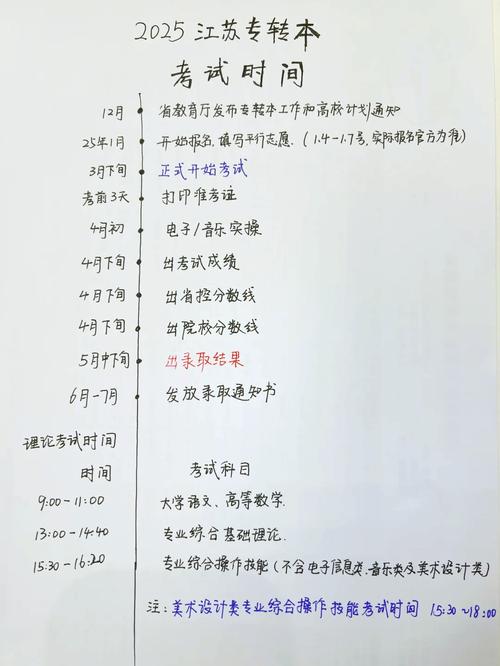 2025 江苏专转本
考试时间
12月 省教育厅发布专转本工作和高校计划通知
25年1月 开始报名.填写平行志愿.（1.4-1.7号,实际报名官方为准）
3月下旬 正式开始考试
考前3天 打印准考证
4月初 电子/音乐实操
4月下旬 出考试成绩
4月下旬 出省控分数线
4月下旬 出院校分数线
5月中下旬 出录取结果
6月-7月 发放录取通知书
理论考试时间
时间 考试科目
9:00-11:00 大学语文、高等数学.
13:00-14:40 专业综合基础理论.
15:30-16:20 专业综合操作技能（不含电子信息类.音乐类及美术设计类）
注：美术设计类专业综合操作技能考试时间 15:30~18:00